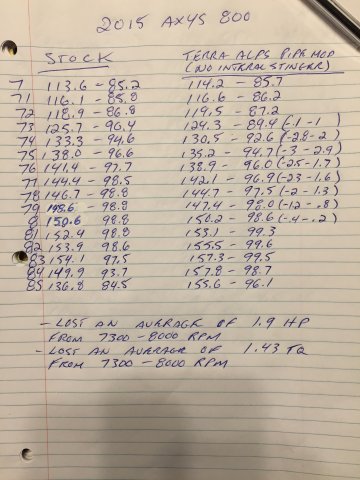 2015 AXYS 800
STOCK TERRA ALPS PIPE MOD
(NO INTERNAL STINGER)
7 113.6 - 85.2 114.2 - 85.7
71 116.1 - 85.8 116.6 - 86.2
72 118.9 - 86.8 119.5 - 87.2
73 125.7 - 90.4 124.3 - 89.4 (-1.1 -1)
74 133.3 - 94.6 130.5 - 92.6 (-2.8 -2)
75 138.0 - 96.6 135.2 - 94.7 (-3 -2.9)
76 141.4 - 97.7 138.9 - 96.0 (-2.5 -1.7)
77 144.4 - 98.5 142.1 - 96.9 (-2.3 -1.6)
78 146.7 - 98.8 144.7 - 97.5 (-2 -1.3)
79 148.6 - 98.8 147.4 - 98.0 (-1.2 -.8)
8 150.6 98.8 150.2 - 98.6 (-.4 -.2)
81 152.4 98.8 153.1 - 99.3
82 153.9 98.6 155.5 - 99.6
83 154.1 97.5 157.3 - 99.5
84 149.9 93.7 157.8 - 98.7
85 136.8 84.5 155.6 - 96.1
- LOST AN AVERAGE OF 1.9 HP
FROM 7300 - 8000 RPM
- LOST AN AVERAGE OF 1.43 TQ
FROM 7300 - 8000 RPM